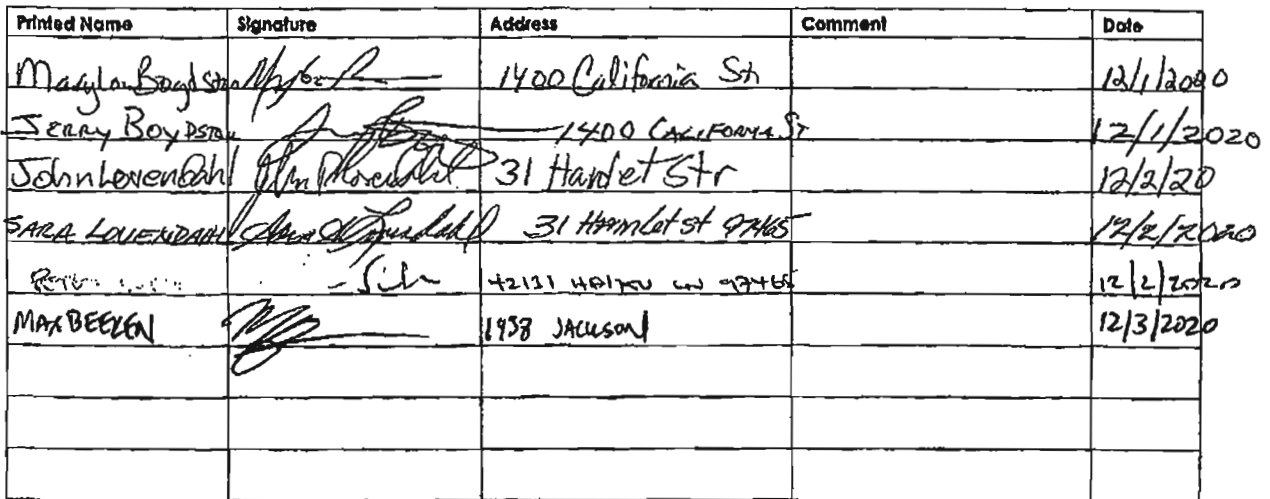 Printed Name Signature Address Comment Date
Marylou Boydston 1400 California St 12/1/2020
JERRY BOYDSTON 1400 CALIFORNIA ST 12/1/2020
John Lovendahl 31 Hamlet Str 12/2/20
SARA LOVENDAHL 31 Hamlet st 97465 12/2/2020
42131 LN 97465 12/2/2020
MAX BEEKEN 1938 JACKSON 12/3/2020